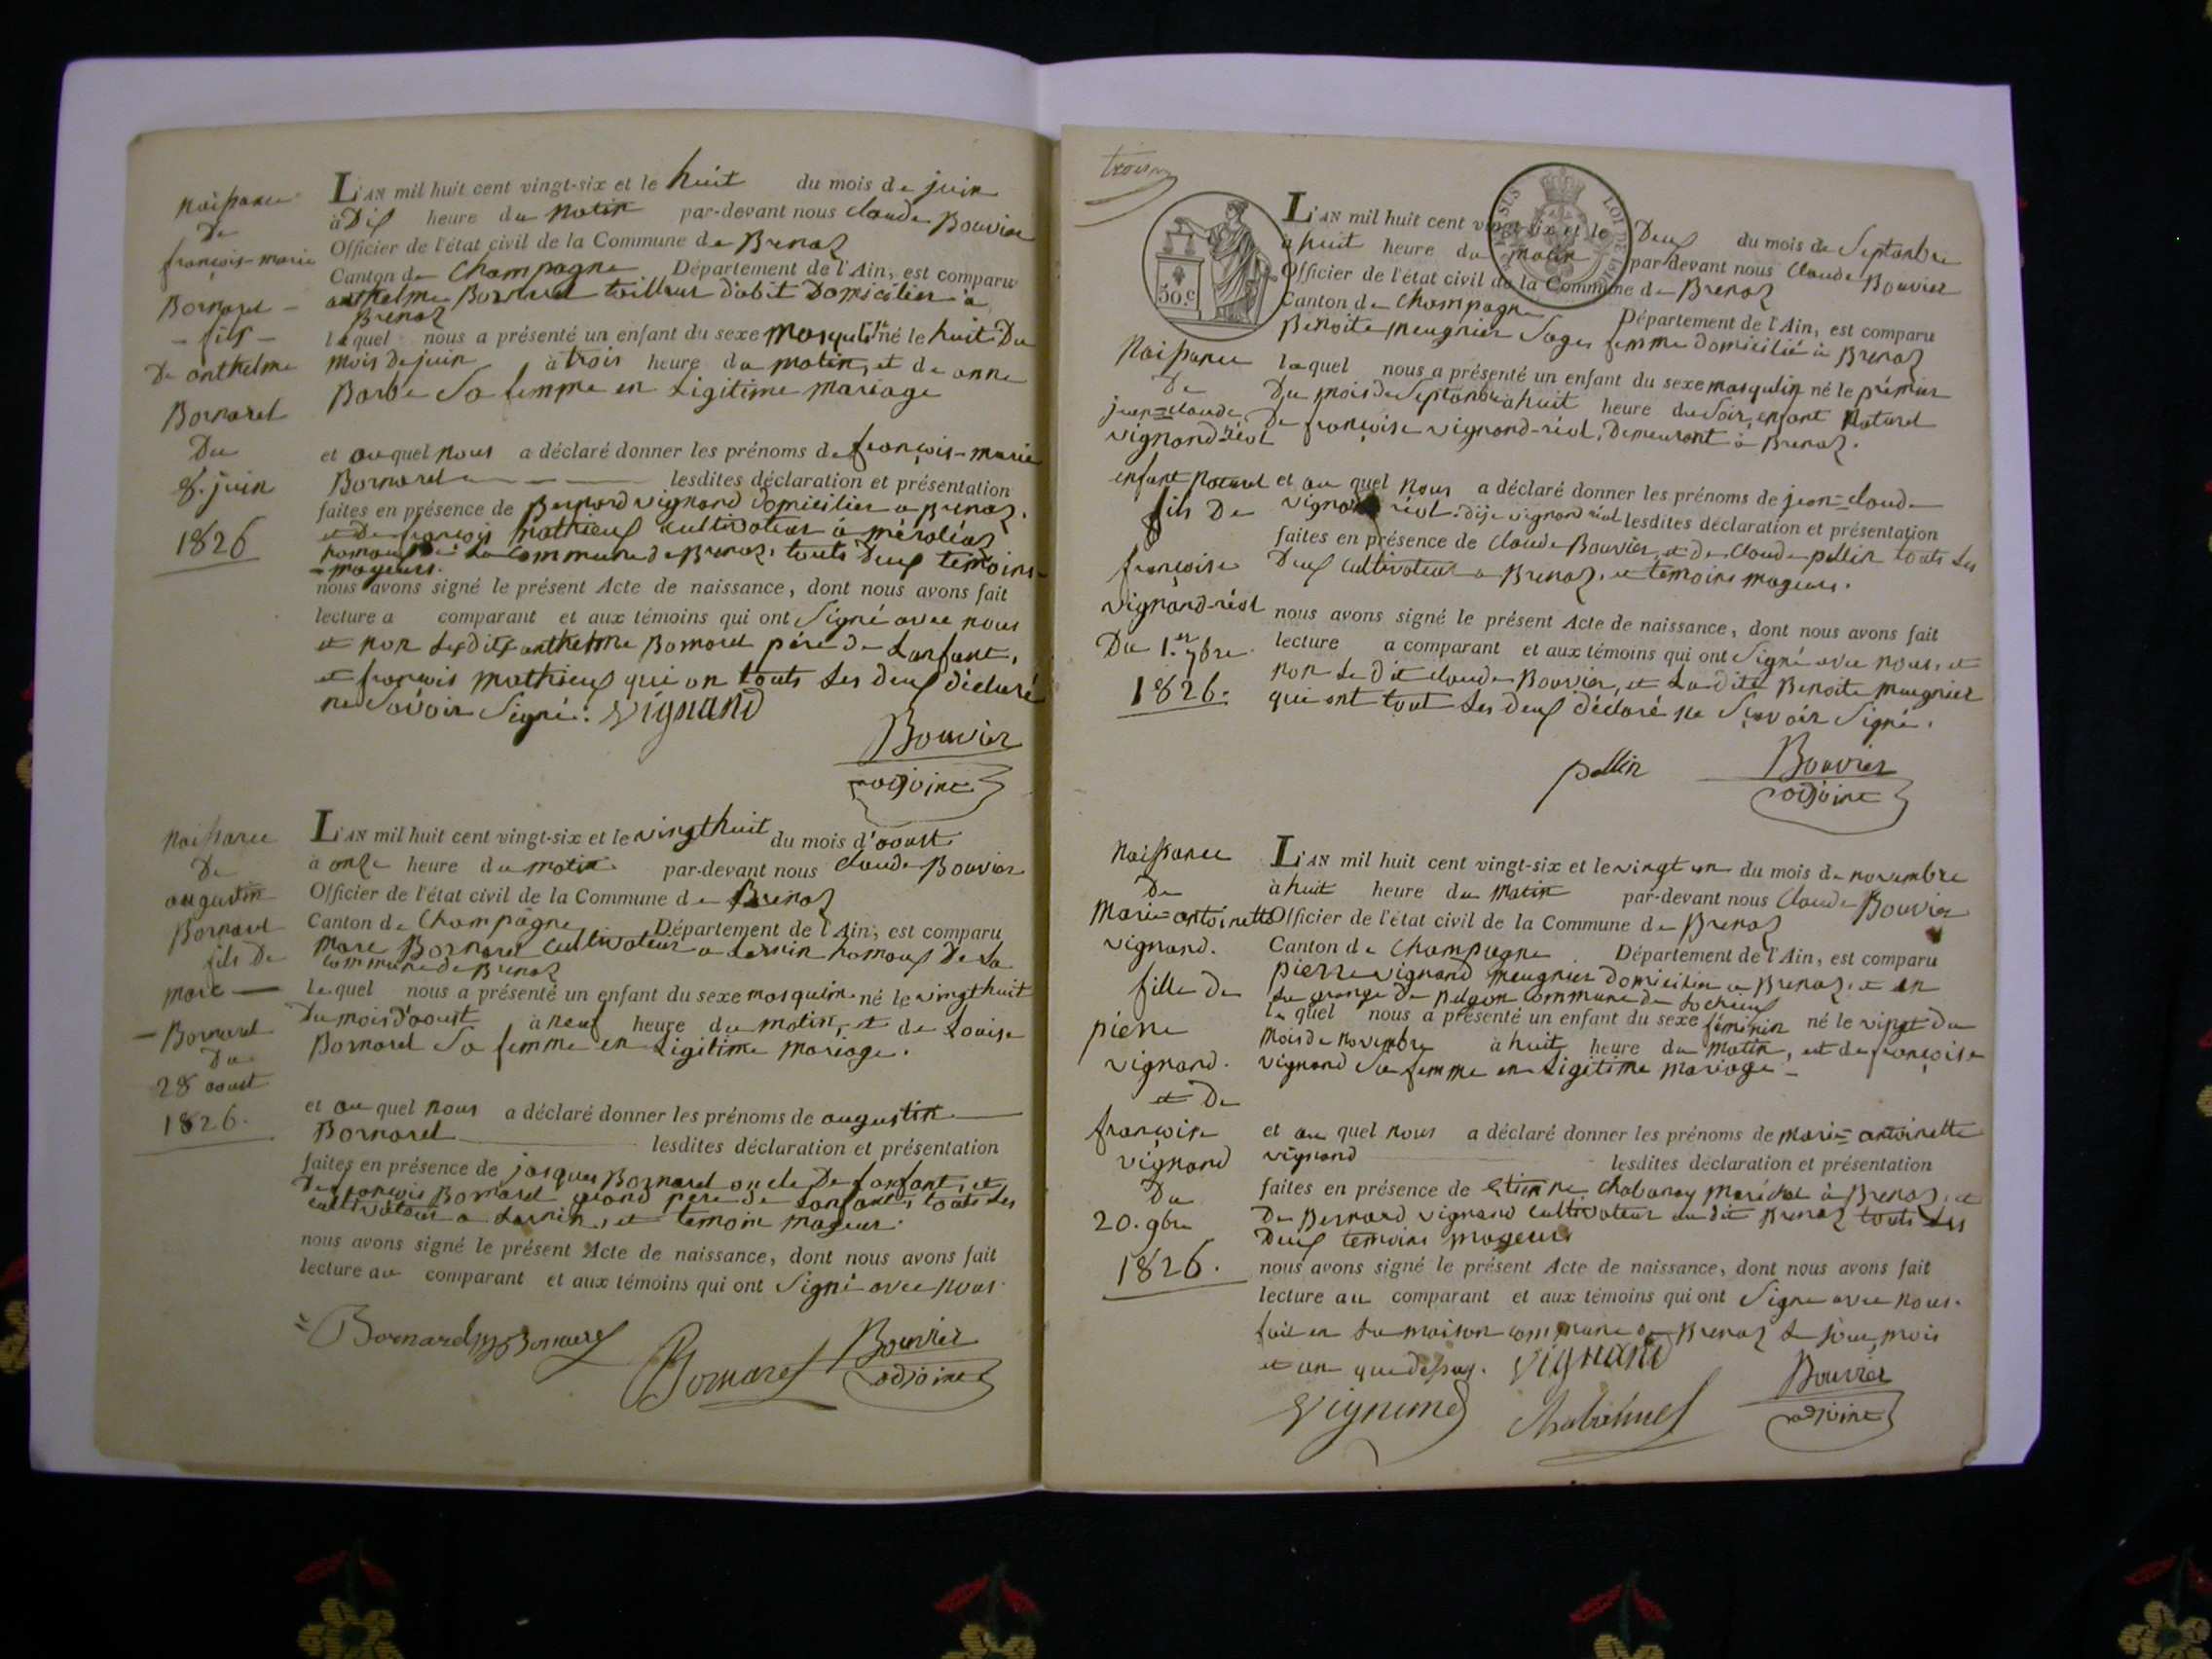 Naissance
De
françois-marie
Bornarel –
– fils –
De anthelme
Bornarel
Du
8. juin
1826
L'AN mil huit cent vingt-six et le huit du mois de juin
à Dix heure du Matin par-devant nous claude Bouvier
Officier de l'état civil de la Commune de Brenaz
Canton de Champagne Département de l'Ain, est comparu
anthelme Bornarel tailleur d'abit Domicilier à
Brenaz
lequel nous a présenté un enfant du sexe Masqulin né le huit Du
Mois De juin à trois heure du matin, et de anne
Barbe Sa femme en Ligitime mariage
et auquel nous a déclaré donner les prénoms de françois-marie
Bornarel lesdites déclaration et présentation
faites en présence de Bernard vignand Domicilier a Brenaz.
et De françois Mathieux cultivateur à méraléaz
hamaux de La Commune de Brenaz. touts Deux temoins
– mageurs.
nous avons signé le présent Acte de naissance, dont nous avons fait
lecture a comparant et aux témoins qui ont Signé avec nous
et non Lesdits anthelme Bornarel père De Lanfant,
et françois Mathieux qui on touts Les deux déclaré
ne Savoir Signé. vignand
Bouvier
adjoint
Naissance
De
augustin
Bornarel
fils De
marc —
– Bornarel
Du
28 aoust
1826.
L'AN mil huit cent vingt-six et le vingthuit du mois d'aoust
à onze heure du matin par-devant nous Claude Bouvier
Officier de l'état civil de la Commune de Brenaz
Canton de Champagne Département de l'Ain, est comparu
Marc Bornarel Cultivateur a Larnin hamaux De La
Commune de Brenaz
lequel nous a présenté un enfant du sexe masqulin né le vingthuit
Du mois d'aoust à neuf heure du matin, et de Louise
Bornarel Sa femme en Ligitime Mariage.
et au quel nous a déclaré donner les prénoms de augustin
Bornarel lesdites déclaration et présentation
faites en présence de jacques Bornarel oncle De Lanfant, et
De françois Bornarel grand père de Lanfant, touts Les
cultivateur a Larnin, et temoin mageur.
nous avons signé le présent Acte de naissance, dont nous avons fait
lecture au comparant et aux témoins qui ont Signé avec nous.
Bornarel Bornarel
Bornarel
Bouvier
adjoint
trois
50.c
LOI DE 1816
L'AN mil huit cent vingt-six et le Deux du mois de Septanbre
à huit heure du matin par-devant nous Claude Bouvier
Officier de l'état civil de la Commune de Brenaz
Canton de Champagne Département de l'Ain, est comparu
Benoite Meugnier Sages femme domicilié à Brenaz
laquel nous a présenté un enfant du sexe masqulin né le prémier
Du mois de Septanbre a huit heure du Soir, enfant Naturel
De françoise vignand-réol, Demeurant à Brenaz.
Naissance
De
jean=claude
vignand-réol
enfant Naturel
fils De
françoise
vignand-réol
Du 1.er 7bre
1826.
et au quel Nous a déclaré donner les prénoms de jean=claude
vignand réol. dije vignand réol lesdites déclaration et présentation
faites en présence de Claude Bouvier, et de Claude pellin touts Les
Deux Cultivateur a Brenaz. et temoins mageurs.
nous avons signé le présent Acte de naissance, dont nous avons fait
lecture a comparant et aux témoins qui ont Signé avec nous, et
non Le dit claude Bouvier, et La dite Benoite Meugnier
qui ont tout Les deux déclaré ne Scavoir Signé.
pellin
Bouvier
adjoint
Naissance
De
Marie=antoinette
vignand.
fille De
pierre
vignand.
et De
françoise
vignand
Du
20. 9bre
1826.
L'AN mil huit cent vingt-six et le vingt un du mois de novembre
à huit heure du Matin par-devant nous Claude Bouvier
Officier de l'état civil de la Commune de Brenaz
Canton de Champagne Département de l'Ain, est comparu
pierre vignand Meugnier Domicilier a Brenaz. et en
La grange De pelgon Commune de Lochieux
le quel nous a présenté un enfant du sexe féminin né le vingt Du
Mois de Novembre à huit heure du Matin, et de françoise
vignand Sa femme en Ligitime Mariage –
et au quel nous a déclaré donner les prénoms de Marie=antoinette
vignand lesdites déclaration et présentation
faites en présence de Etienne Chabanay Maréchal à Brenaz, et
De Bernard vignand Cultivateur au dit Brenaz touts Les
Deux temoins mageurs
nous avons signé le présent Acte de naissance, dont nous avons fait
lecture au comparant et aux témoins qui ont Signé avec nous.
fait en La maison commune de Brenaz Le jour, mois
et an que dessus. vignand
vignand
Bouvier
adjoint